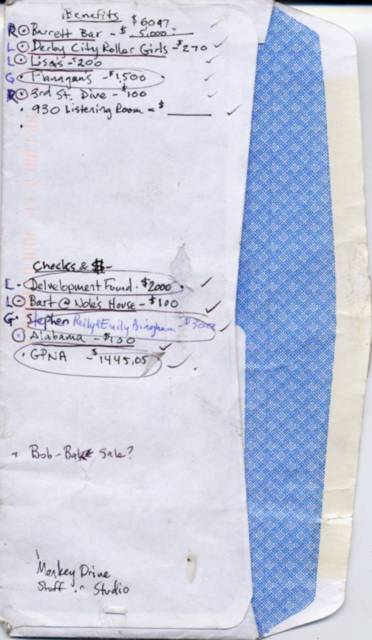 Benefits
$6047
R Burett Bar - $5,000
L Derby City Roller Girls - $270
L Lisa's - $200
G Flanagan's - $1,500
R 3rd St. Dive - $100
930 Listening Room = $
Checks & $-
L Delvelopment Found - $2000
L Bart @ Nole's House - $100
G Stephen Reily & Emily Bingham
Alabama - $100
GPNA - $1445.05
Bob - Bake Sale?
Monkey Drive
Stuff in Studio